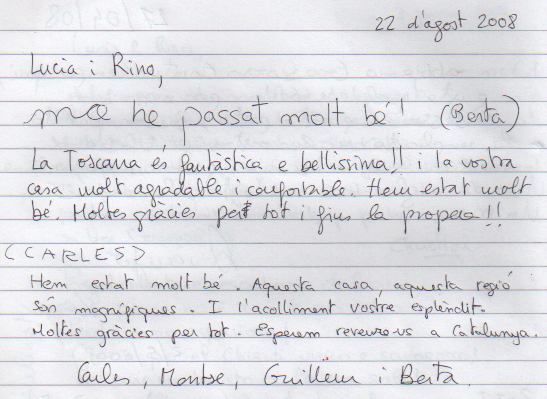 22 d'agost 2008
Lucia i Rino,
m'ho he passat molt bé! (Berta)
La Toscana és fantàstica e bellissima!! i la vostra
casa molt agradable i confortable. Hem estat molt
bé. Moltes gràcies per tot i fins la propera!!
(CARLES)
Hem estat molt bé. Aquesta casa, aquesta regió
són magnífiques. I l'acolliment vostre esplèndit.
Moltes gràcies per tot. Esperem reveure-us a Catalunya.
Carles, Montse, Guillem i Berta.